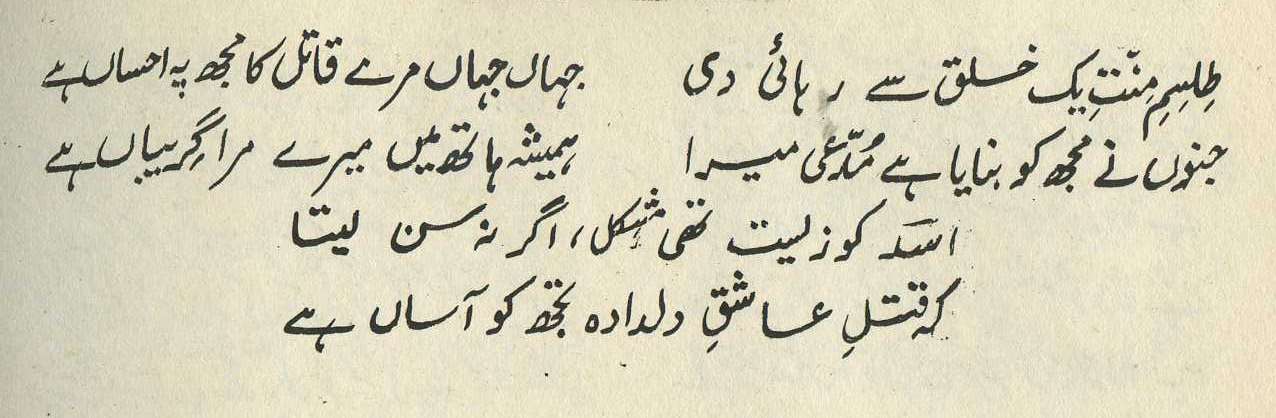 طِلِسِمِ مِنّتِ یک خلق سے رہائی دی جہاں جہاں مرے قاتل کا مجھ پہ احساں ہے
جنوں نے مجھ کو بنایا ہے مُدّعی میرا ہمیشہ ہاتھ میں میرے مرا گریباں ہے
اسد کو زیست تھی مشکل، اگر نہ سن لیتا
کہ قتلِ عاشقِ دلدادہ تجھ کو آساں ہے